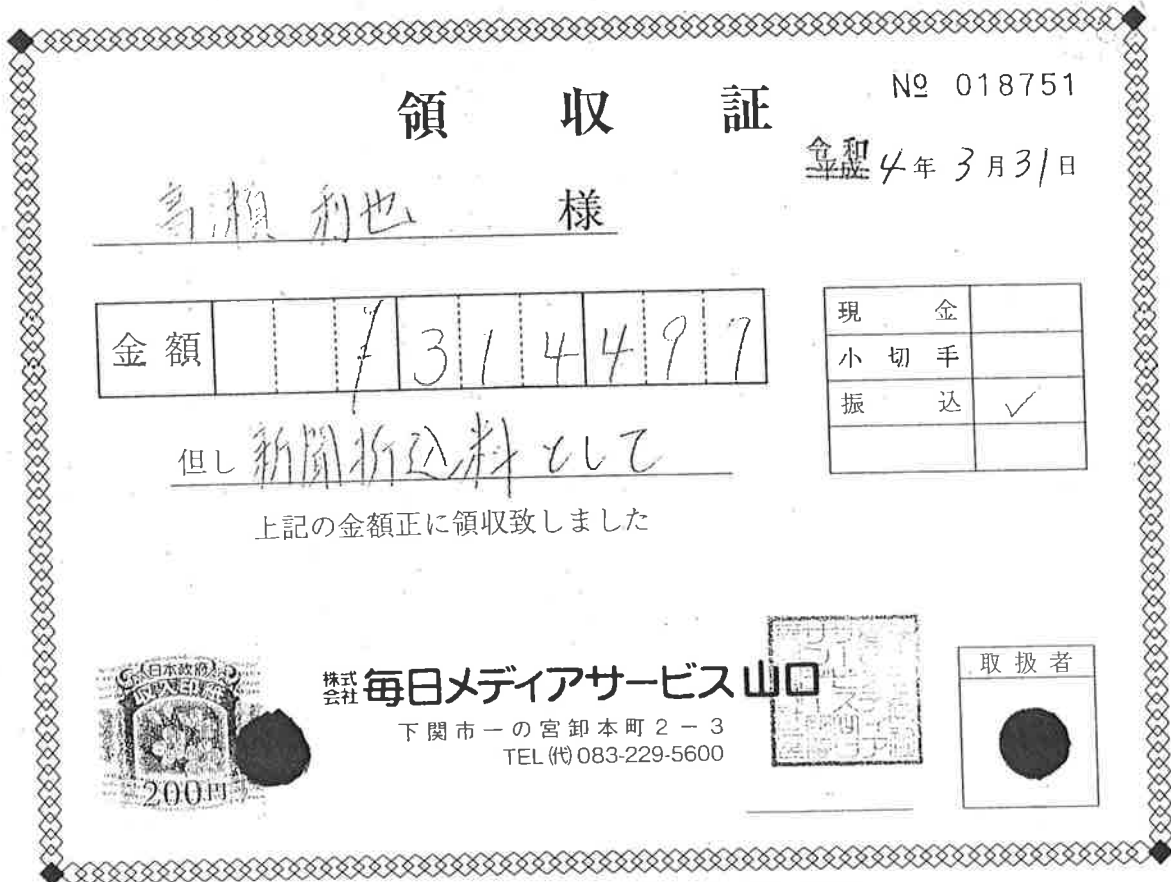 領収証
№ 018751
令和
平成 4年 3月31日
高瀬 利也 様
金額 ¥314497
現金
小切手
振込 ✓
但し 新聞折込料として
上記の金額正に領収致しました
日本政府
収入印紙
200円
株式会社 毎日メディアサービス山口
下関市一の宮卸本町2-3
TEL(代)083-229-5600
取扱者